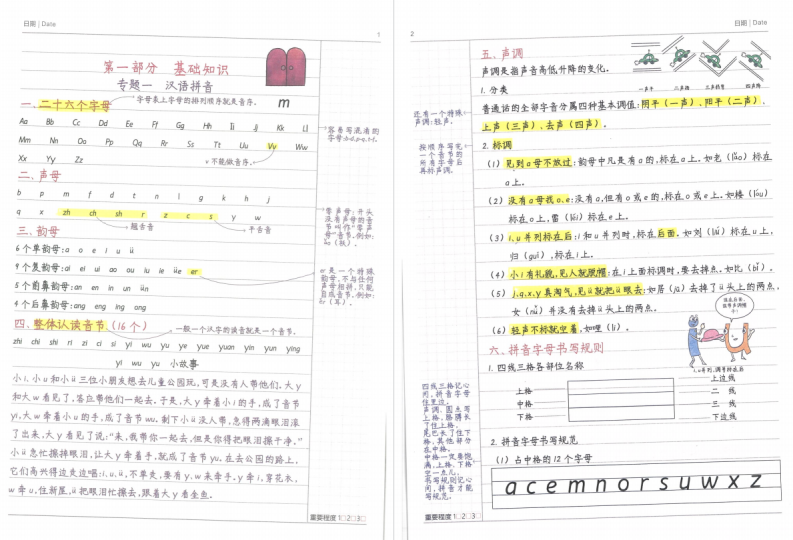 日期 | Date
1
第一部分 基础知识
专题一 汉语拼音
m
一.二十六个字母
字母表上字母的排列顺序就是音序。
Aa Bb Cc Dd Ee Ff Gg Hh Ii Jj Kk Ll
Mm Nn Oo Pp Qq Rr Ss Tt Uu Vv Ww
Xx Yy Zz
v 不能做音序。
容易写混淆的
二.声母
b p m f d t n l g k h j
q x zh ch sh r z c s y w
翘舌音
平舌音
零声母:开头
没有声母的音
节叫作"零声
母"音节,例如:
三.韵母
6个单韵母:a o e i u ü
9个复韵母:ai ei ui ao ou iu ie üe er
5个前鼻韵母:an en in un ün
4个后鼻韵母:ang eng ing ong
er 是一个特殊
韵母,不与任何
声母相拼,只能
自成音节,例如:
四.整体认读音节(16个)
一般一个认字的读音就是一个音节。
zhi chi shi ri zi ci si yi wu yu ye yue yuan yin yun ying
yi wu yu 小故事
小i,小u和小ü三位小朋友想去儿童公园玩,可是没有人带他们。大y
和大w看见了,答应带他们一起去。于是,大y牵着小i的手,成了音节
yi,大w牵着小u的手,成了音节wu。剩下小ü没人带,急得两滴眼泪滚
了出来,大y看见了说:"来,我带你一起去,但是你得把眼泪擦干净。"
小ü急忙擦掉眼泪,让大y牵着手,就成了音节yu。在去公园的路上,
它们高兴得边走边唱:i,u,ü,不单走,要有y,w来牵手。y牵i,穿花衣,
w牵u,住新屋,ü把眼泪忙擦去,跟着大y看金鱼。
重要程度 1□2□3□
2
日期 | Date
五.声调
声调是指声音高低升降的变化。
1.分类
一声平 二声扬 三声拐弯 四声降
普通话的全部字音分属四种基本调值:阴平(一声)、阳平(二声)、
上声(三声)、去声(四声)。
还有一个特殊
声调:轻声。
2.标调
按顺序写完
一个音节的
所有字母后
再标声调。
(1)见到a母不放过:韵母中凡是有a的,标在a上。如老(lǎo)标在
a上。
(2)没有a母找o,e:没有a,但有o或e的,标在o或e上。如楼(lóu)
标在o上,雷(léi)标在e上。
(3)i,u并列标在后:i和u并列时,标在后面。如刘(liú)标在u上,
归(guī),标在i上。
(4)小i有礼貌,见人就脱帽:在i上面标调时,要去掉点。如比(bǐ)。
(5)j,q,x,y真淘气,见ü就把ü眼去:如居(jū)去掉了ü头上的两点,
女(nǚ)并没有去掉ü头上的两点。
(6)轻声不标就空着,如哩(li)。
六.拼音字母书写规则
1.四线三格各部位名称
上格
中格
下格
上边线
二 线
三 线
下边线
四线三格记心
间,拼音字母
住里边。
2.拼音字母书写规范
(1)占中格的12个字母
a c e m n o r s u w x z
重要程度 1□2□3□